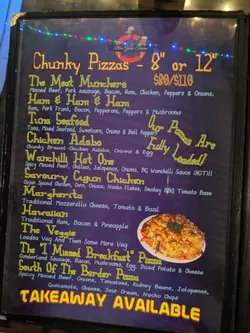 Chunky Pizzas - 8" or 12"
$80/$110
The Meat Munchers
Minced Beef, Pork Sausage, Bacon, Ham, Chicken, Peppers & Onions.
Ham & Ham & Ham
Ham, Pork Frank, Bacon, Pepperoni, Peppers & Mushrooms
Tuna Seafood
Tuna, Mixed Seafood, Sweetcorn, Onions & Bell Peppers
Our Pizzas Are Fully Loaded!
Chicken Adobo
Chunky Breast Chicken Adobo, Onions & Egg
Wanchilli Hot One
Spicy Minced Beef, Chillies, Jalapenos, Onions, BQ Wanchilli Sauce (HOT!!!)
Savoury Cajun Chicken
Cajun Spiced Chicken, Corn, Onions, Nacho Flakes, Smokey BBQ Tomato Base
Margherita
Traditional Mozzarella Cheese, Tomato & Basil
Hawaiian
Traditional Ham, Bacon & Pineapple
The Veggie
Loadsa Veg And Then Some More Veg
The "I Missed Breakfast" Pizza
Cumberland Sausage, Bacon, Mushrooms, Egg, Diced Potato & Cheese
South Of The Border Pizza
Spicy Minced Beef, Onions, Tomatoes, Kidney Beans, Jalapenos,
Guacamole, Cheese, Sour Cream, Nacho Chips
TAKEAWAY AVAILABLE